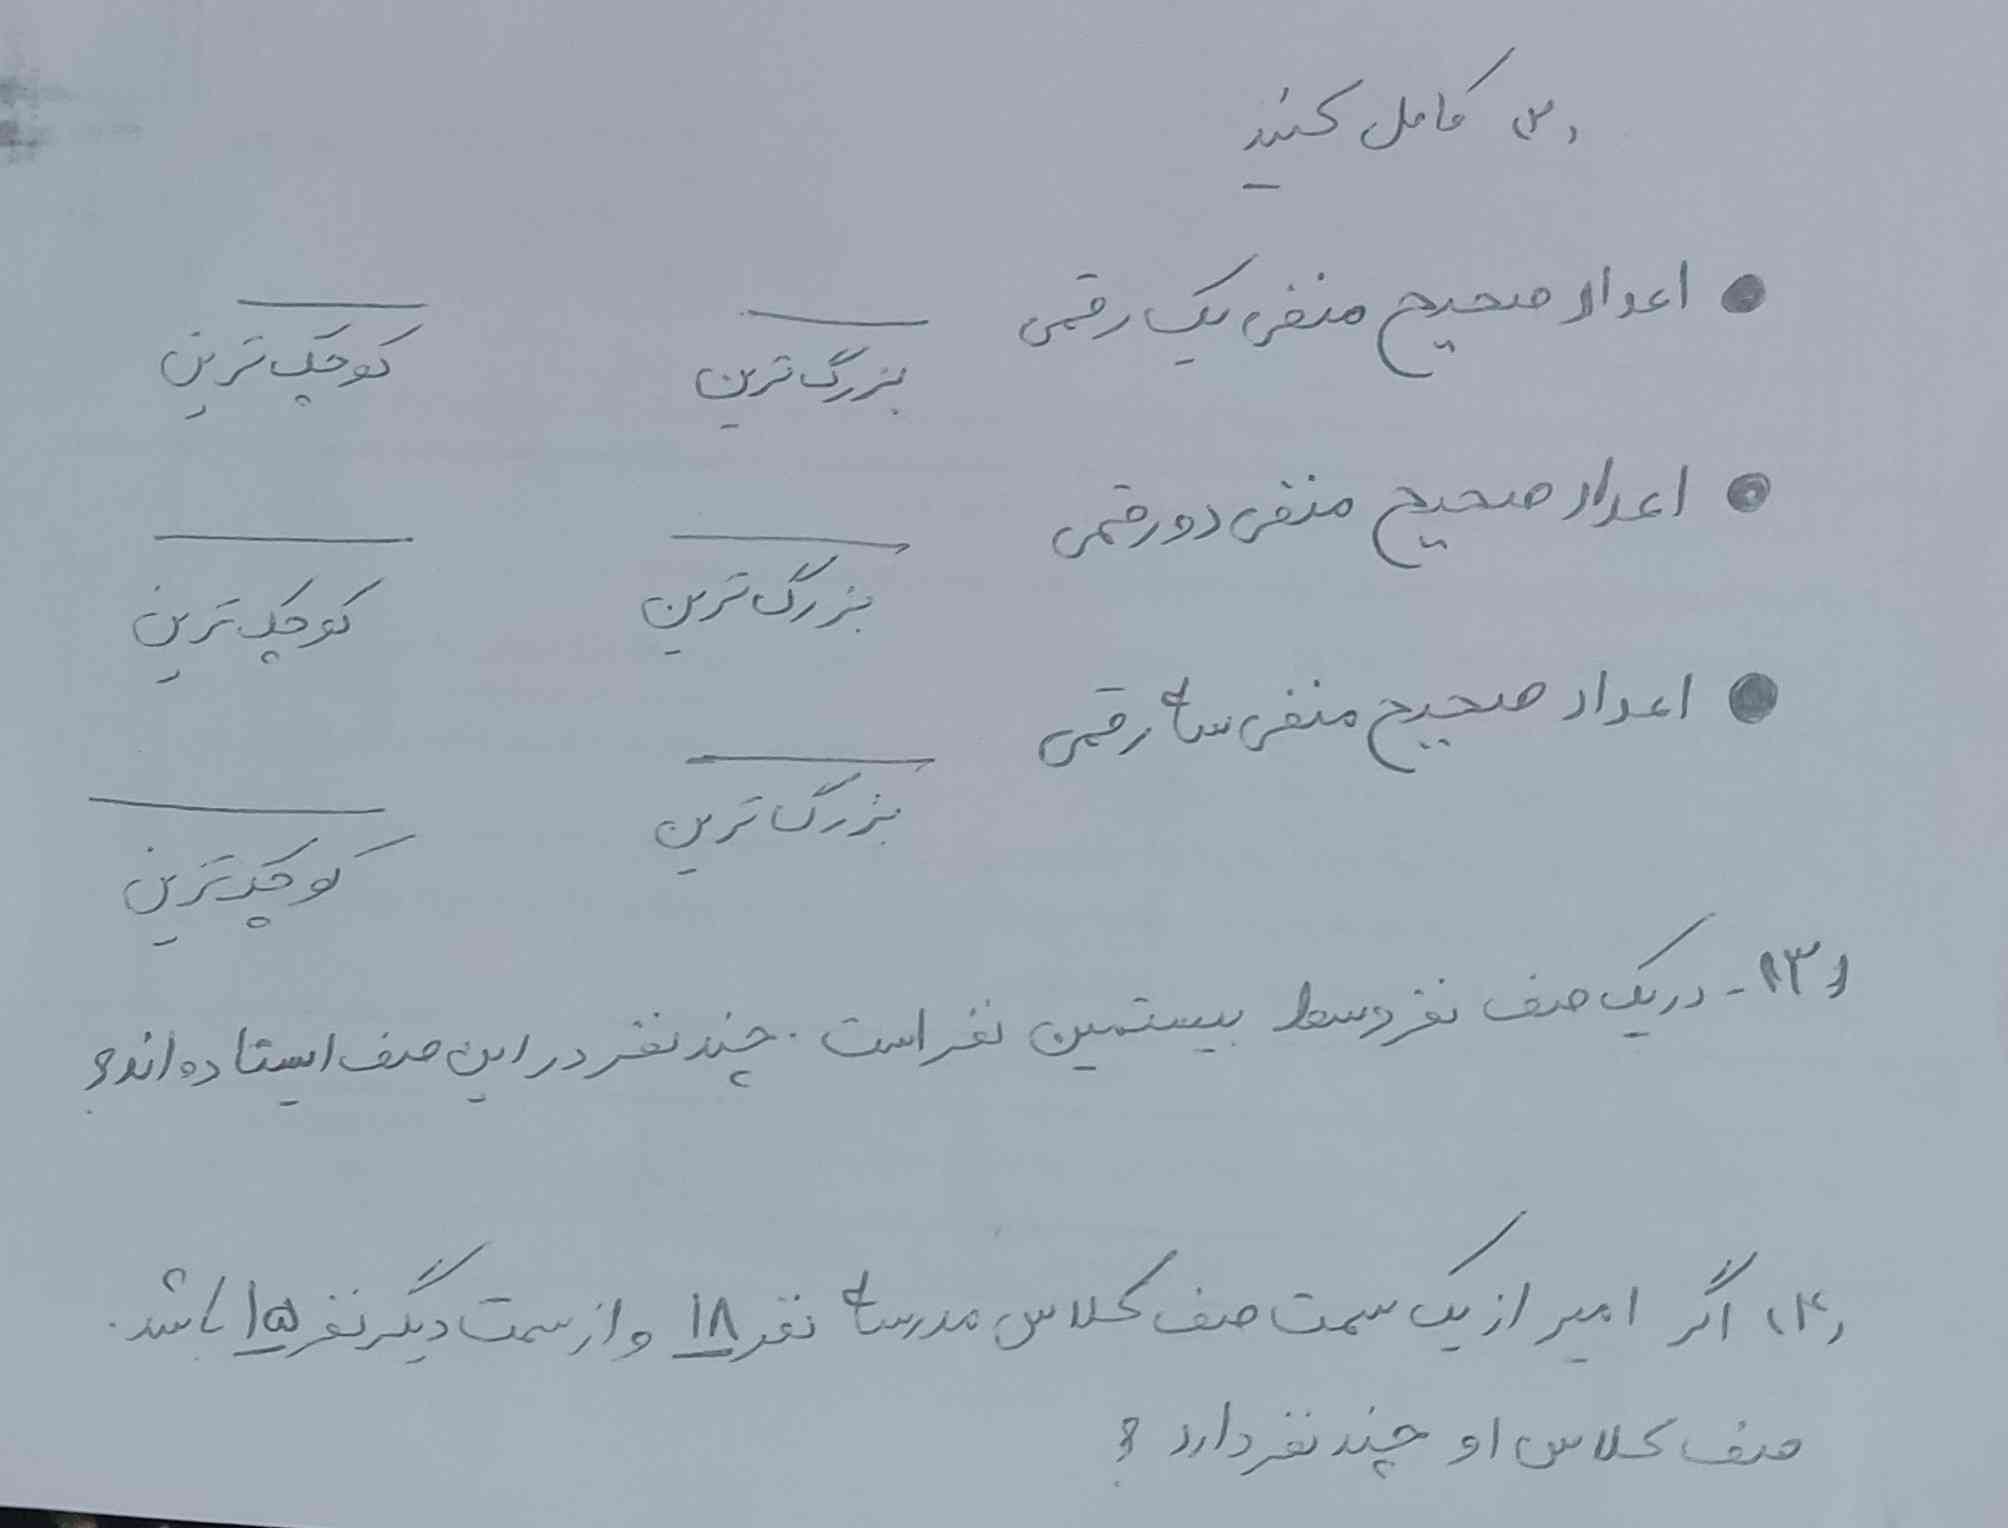 کامل کنید
● اعداد صحیح منفی یک رقمی ____ ____
بزرگ‌ترین کوچک‌ترین
● اعداد صحیح منفی دو رقمی ____ ____
بزرگ‌ترین کوچک‌ترین
● اعداد صحیح منفی سه رقمی ____ ____
بزرگ‌ترین کوچک‌ترین
۱۳- در یک صف نفر وسط بیستمین نفر است. چند نفر در این صف ایستاده‌اند؟
اگر امیر از یک سمت صف کلاس مدرسه نفر ۱۸ و از سمت دیگر نفر ۱۵ باشد.
صف کلاس او چند نفر دارد؟